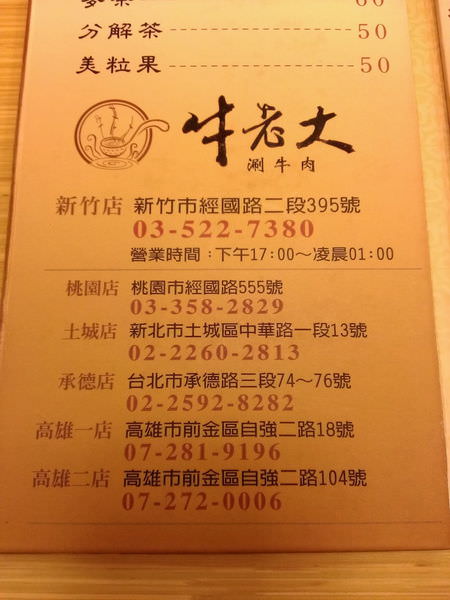 60
分解茶 50
美粒果 50
牛老大
涮牛肉
新竹店 新竹市經國路二段395號
03-522-7380
營業時間：下午17:00～凌晨01:00
桃園店 桃園市經國路555號
03-358-2829
土城店 新北市土城區中華路一段13號
02-2260-2813
承德店 台北市承德路三段74～76號
02-2592-8282
高雄一店 高雄市前金區自強二路18號
07-281-9196
高雄二店 高雄市前金區自強二路104號
07-272-0006